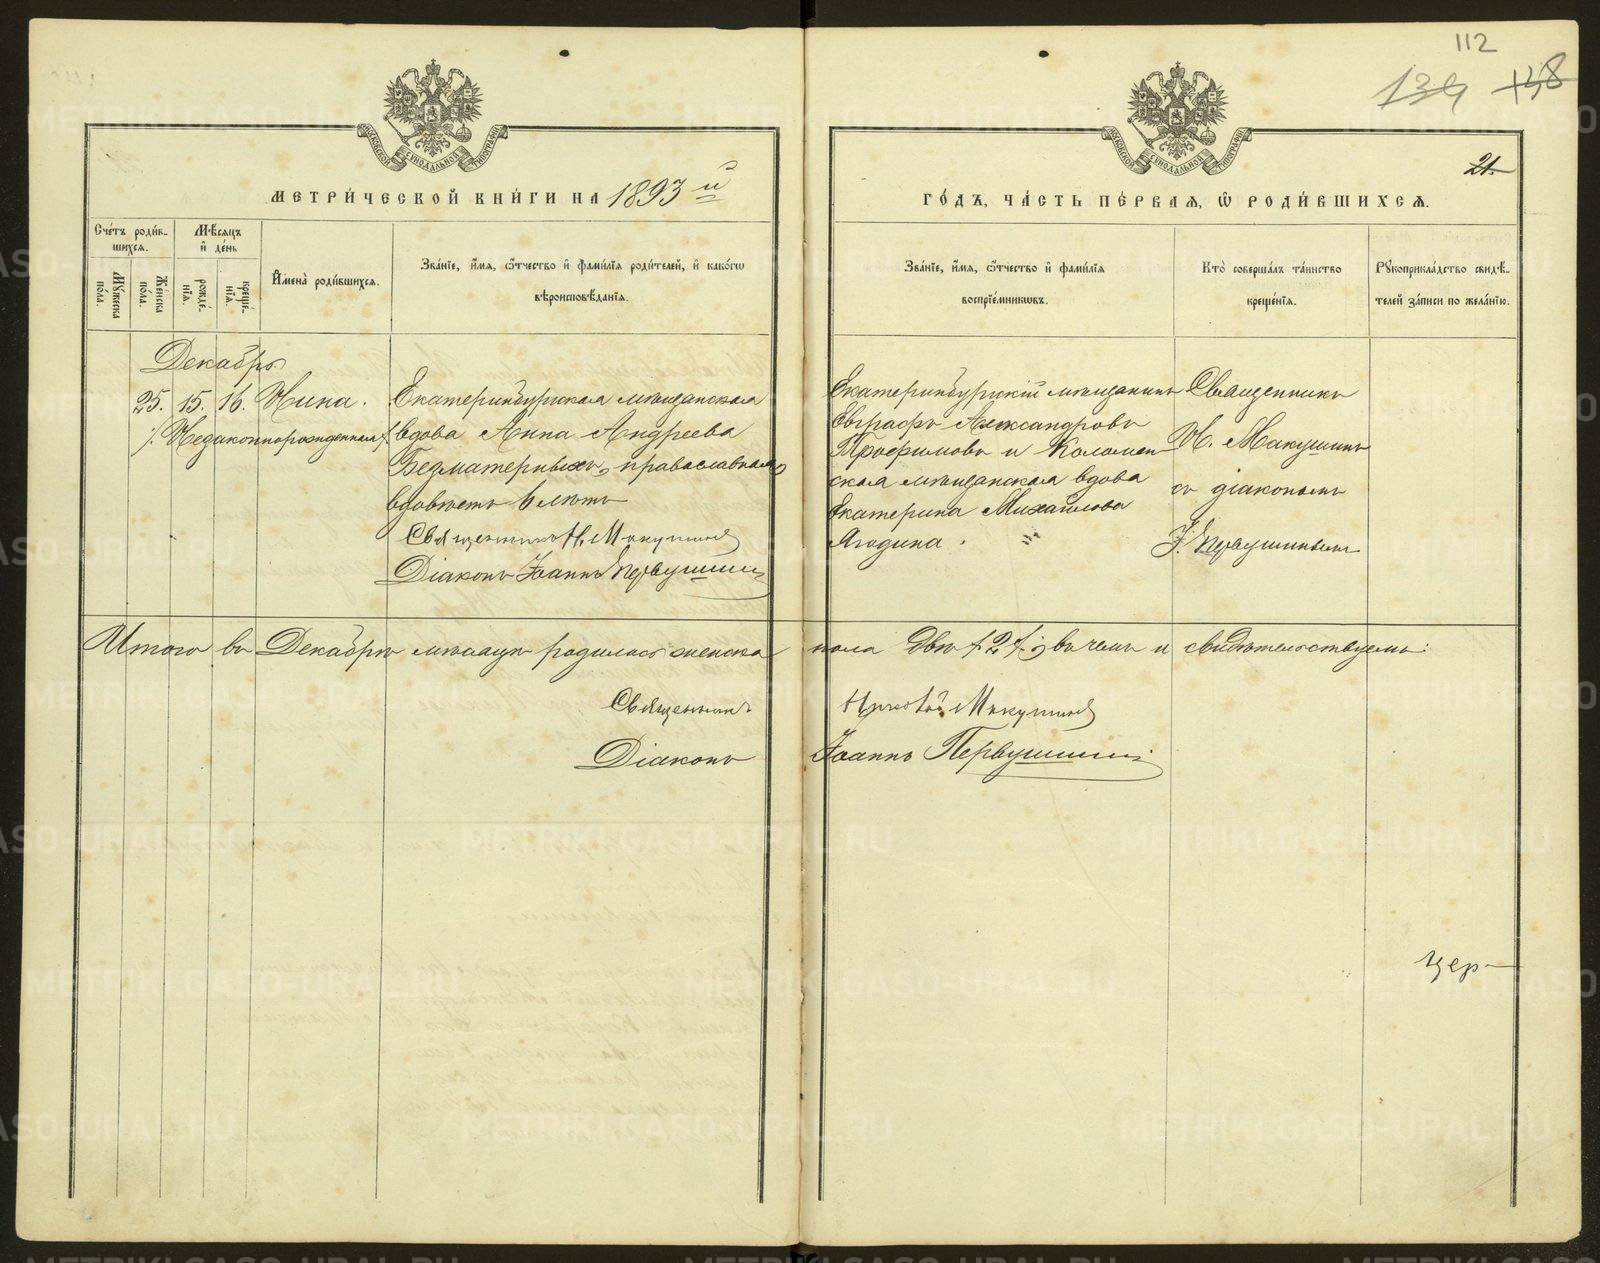 112
134 138
21.
МОСКОВСКОЙ СѴНОДАЛЬНОЙ ТИПОГРАФІИ
МОСКОВСКОЙ СѴНОДАЛЬНОЙ ТИПОГРАФІИ
МЕТРИ́ЧЕСКОЙ КНИ́ГИ НА 1893й
ГО́ДЪ, ЧА́СТЬ ПЕ́РВАЯ, Ѡ РОДИ́ВШИХСЯ.
Сче́тъ роди́в-
шихся.
Мѣ́сяцъ
и де́нь
Му́жеска по́ла.
Же́нска по́ла.
рожде́-
нія.
креще́-
нія.
И҆мена̀ роди́вшихся.
Зва́ніе, и҆́мя, ѻ҆́тчество и҆ фами́лія роди́телей, и҆ како́гѡ
вѣроисповѣ́данія.
Зва́ніе, и҆́мя, ѻ҆́тчество и҆ фами́лія
воспріе́мникѡвъ.
Кто̀ соверша́лъ та́инство
креще́нія.
Рукоприкла́дство свидѣ́-
телей за́писи по жела́нію.
Декабрь
25. 15. 16. Нина.
/. Незаконнорожденная /.
Екатеринбургская мѣщанская
вдова Анна Андреева
Безматерныхъ, православная,
вдовѣетъ 6 лѣтъ
Священникъ Н. Макушинъ
Діаконъ Іоаннъ Первушинъ
Екатеринбургскій мѣщанинъ
Евграфъ Александровъ
Трофимовъ и Коломен
ская мѣщанская вдова
Екатерина Михайлова
Ягодина.
Священникъ
Н. Макушинъ
съ діакономъ
І. Первушинымъ
Итого въ Декабрѣ мѣсяцѣ родилось женска пола двѣ /2/; въ чемъ и свидѣтельствуемъ:
Священникъ Николай Макушинъ
Діаконъ Іоаннъ Первушинъ
Цер-
METRIKI.GASO-URAL.RU